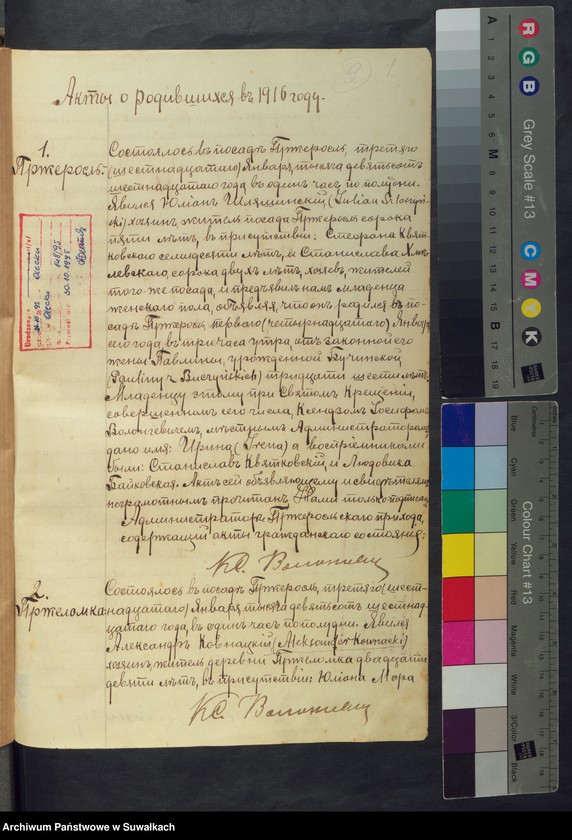 Акты о родившихся въ 1916 году.
1.
Пржеросль.
Состоялось въ посадѣ Пржеросль, третяго
(шестнадцатаго) Января, тысяча девятьсотъ
шестнадцатаго года, въ одинъ часъ по полудни.
Явился Юліанъ Шляшинскій (Julian
хозяинъ, житель посада Пржеросль сорока
пяти лѣтъ, въ присутствіи: Стефана Квят-
ковскаго семидесяти лѣтъ, и Станислава
левскаго, сорока двухъ лѣтъ, хозяевъ, жителей
того-же посада, и предъявилъ намъ младенца
женскаго пола, объявляя, что онъ родился въ по-
садѣ Пржеросль перваго (четырнадцатаго) Января
сего года, въ три часа утра, отъ законной его
жены Павлины, урожденной Бучинской
(Pauliny z Buczyńskich) тридцати шести лѣтъ.
Младенцу этому при Святомъ Крещеніи,
совершенномъ сего числа, Ксендзомъ Іосифомъ
Волонгевичемъ, мѣстнымъ Администраторомъ
дано имя: Ирина (Irena) а воспріемниками
были: Станиславъ Квятковскій и Людовика
Байковская. Актъ сей объявляющему и свидѣтелямъ
неграмотнымъ прочитанъ, Нами только подписанъ.
Администраторъ Пржеросльскаго прихода,
содержащій акты гражданскаго состоянія:
КС. Волонгевичъ
2.
Пржеломка
Состоялось въ посадѣ Пржеросль, третяго (шест-
надцатаго) Января, тысяча девятьсотъ шестнад-
цатаго года, въ одинъ часъ по полудни. Явился
Александръ Ковнацкій (Aleksander Kownacki)
хозяинъ, житель деревни Пржеломка двадцати
девяти лѣтъ, въ присутствіи: Юліана Мора
КС. Волонгевичъ
A 1 2 3 4 5 6 M 8 9 10 11 12 13 14 15 B 17 18 19
R G B
Grey Scale #13
C M Y K
Colour Chart #13
Blue
Cyan
Green
Yellow
Red
Magenta
White
3/Color
Black
Centimetres
Archiwum Państwowe w Suwałkach